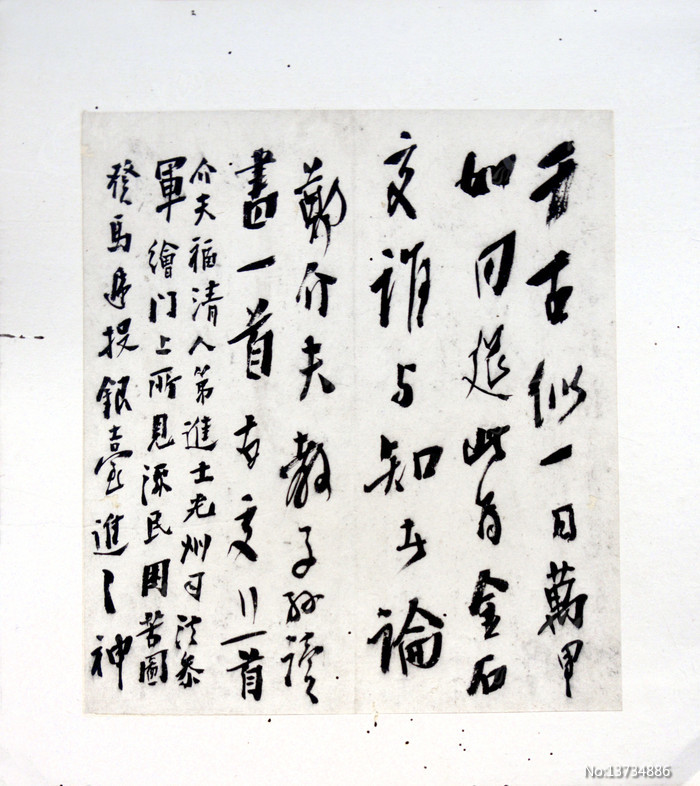 千古似一日萬甲
如同筵此有金石
交誰与知者論
鄭介夫教子孫讀
書一首友交行一首
介夫福清人第進士光州司法參
軍繪门上所見流民困苦圖
發馬遞投銀臺進之神
No:13734886